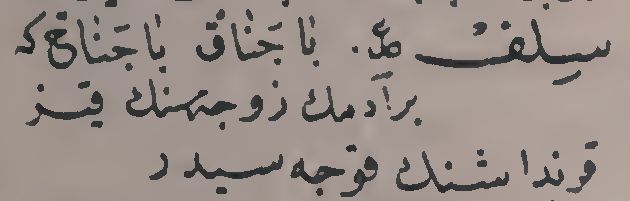 سِلفْ ع. باجَناق باجَناغ كه
بر آدمك زوجه‌سنك قيز
قرنداشنك قوجه سيدر